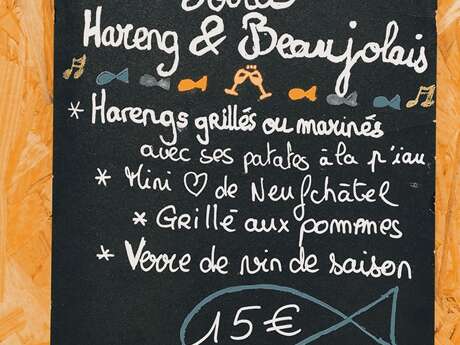 Hareng & Beaujolais
* Harengs grillés ou marinés
avec ses patates à la p'iau
* Mini ♡ de Neufchâtel
* Grillé aux pommes
* Verre de vin de saison
15€